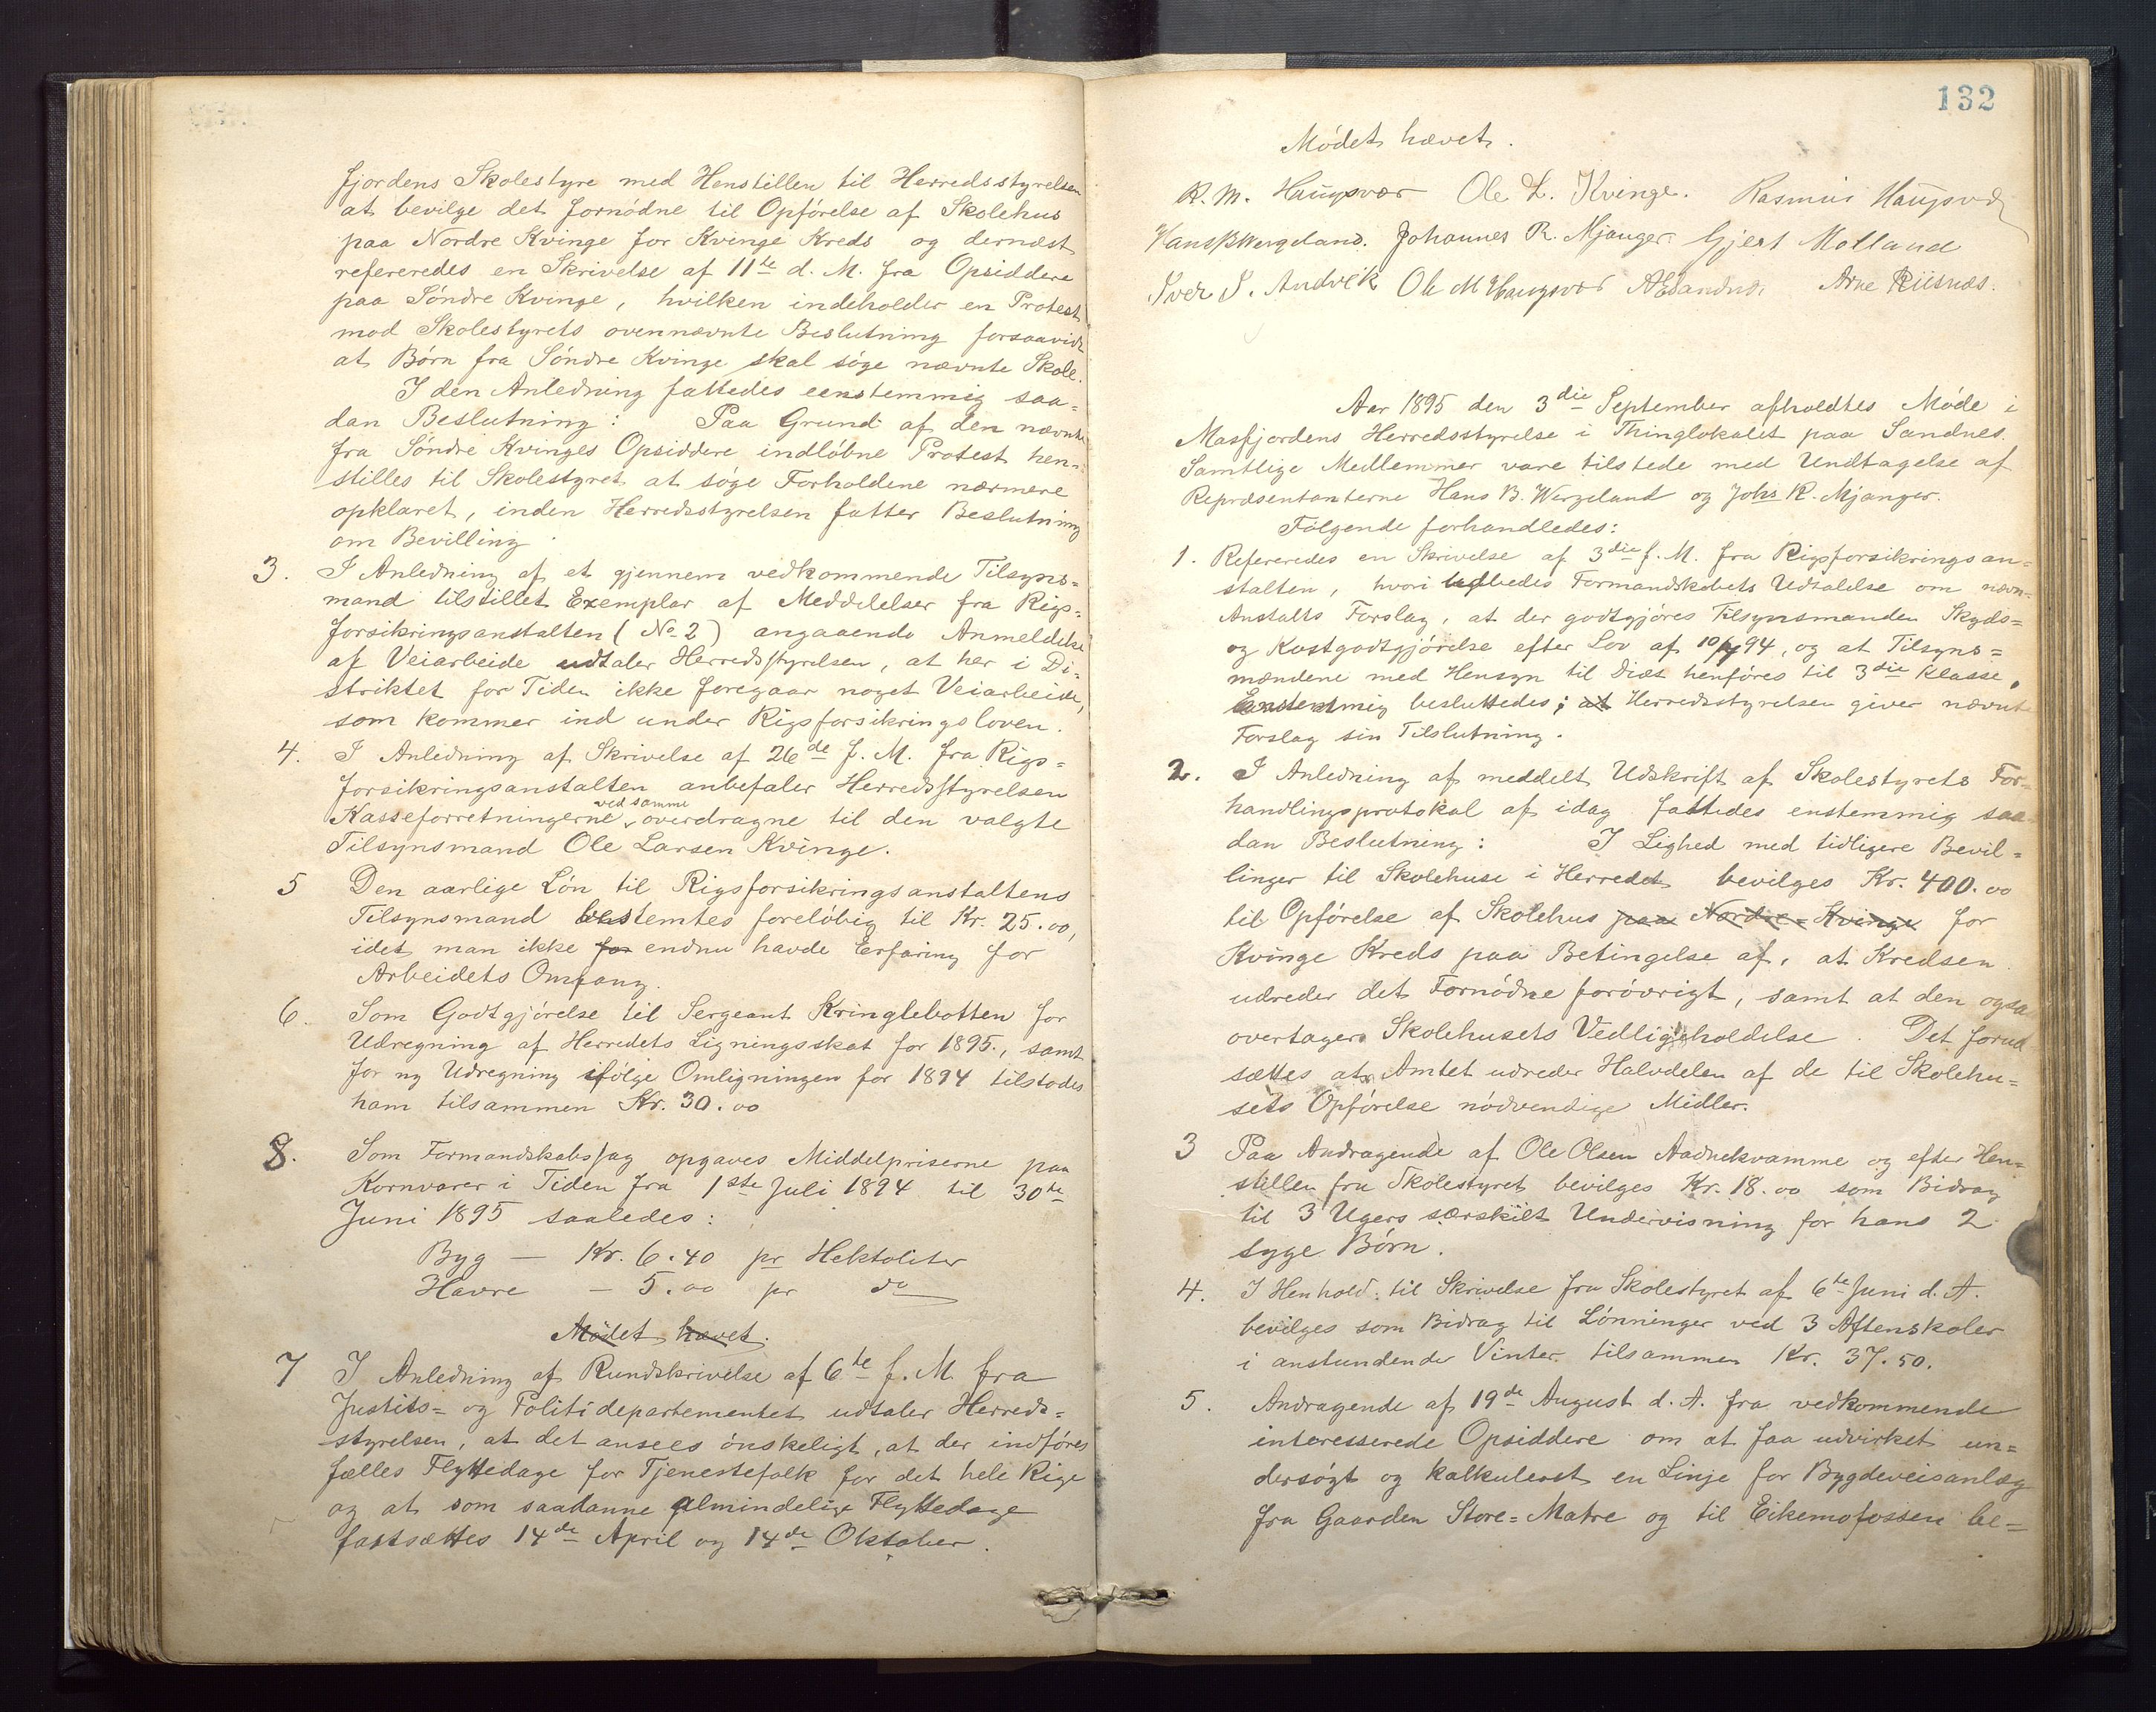 fjordens Skolestyre med Henstillen til Herredsstyrelsen
at bevilge det fornödne til Opförelse af Skolehus
paa Nordre Kvinge for Kvinge Kreds og dernæst
refereredes en Skrivelse af 11te d. M. fra Opsiddere
paa Söndre Kvinge, hvilken indeholder en Protest
mod Skolestyrets ovennævnte Beslutning forsaavidt
at Börn fra Söndre Kvinge skal söge nævnte Skole.
I den Anledning fattedes eenstemmig saa=
dan Beslutning: Paa Grund af den nævnte
fra Söndre Kvinges Opsiddere indlöbne Protest hen=
stilles til Skolestyret at söge Forholdene nærmere
opklaret, inden Herredsstyrelsen fatter Beslutning
om Bevilling.
3. I Anledning af et gjennem vedkommende Tilsyns=
mand tilstillet Exemplar af Meddelelser fra Rigs=
forsikringsanstalten (No 2) angaaende Anmeldelse
af Veiarbeide udtaler Herredsstyrelsen, at her i Di=
striktet for Tiden ikke foregaar noget Veiarbeide,
som kommer ind under Rigsforsikringsloven.
4. I Anledning af Skrivelse af 26de f. M. fra Rigs=
forsikringsanstalten anbefaler Herredsstyrelsen
ved samme
Kasseforretningerne overdragne til den valgte
Tilsynsmand Ole Larsen Kvinge.
5 Den aarlige Lön til Rigsforsikringsanstaltens
Tilsynsmand bestemtes forelöbig til Kr. 25.00,
idet man ikke for endnu havde Erfaring for
Arbeidets Omfang.
6. Som Godtgjörelse til Sergeant Kringlebotten for
Udregning af Herredets Ligningsskat for 1895., samt
for ny Udregning ifölge Omligningen for 1894 tilstodes
ham tilsammen Kr. 30.00
8. Som Formandskabssag opgaves Middelpriserne paa
Kornvarer i Tiden fra 1ste Juli 1894 til 30te
Juni 1895 saaledes:
Byg — Kr. 6.40 pr Hektoliter
Havre — 5.00 pr do
Mödet hævet.
7 I Anledning af Rundskrivelse af 6te f. M. fra
Justits= og Politidepartementet udtaler Herreds=
styrelsen, at det ansees önskeligt, at der indföres
fælles Flyttedage for Tjenestefolk for det hele Rige
og at som saadanne almindelige Flyttedage
fastsættes 14de April og 14de Oktober.
132
Mödet hævet.
R. M. Haugsvær Ole L. Kvinge. Rasmus Haugsvær
Hans B Wergeland. Johannes R. Mjanger Gjert Molland
Iver I. Andvik Ole M Haugsvær Arne Riisnæs.
Aar 1895 den 3die September afholdtes Möde i
Masfjordens Herredsstyrelse i Thinglokalet paa Sandnes.
Samtlige Medlemmer vare tilstede med Undtagelse af
Repræsentanterne Hans B. Wergeland og Johs R. Mjanger.
Fölgende forhandledes:
1. Refereredes en Skrivelse af 3die f. M. fra Rigsforsikringsan=
stalten, hvori udbedes Formandskabets Udtalelse om nævn=
Anstalts Forslag, at der godtgjöres Tilsynsmanden Skyds=
og Kostgodtgjörelse efter Lov af 10/7 94, og at Tilsyns=
mændene med Hensyn til Diæt henföres til 3die Klasse.
Eenstemmig besluttedes; at Herredsstyrelsen giver nævnte
Forslag sin Tilslutning.
2. I Anledning af meddelt Udskrift af Skolestyrets For=
handlingsprotokal af idag fattedes enstemmig saa
dan Beslutning: I Lighed med tidligere Bevil=
linger til Skolehuse i Herredet bevilges Kr. 400.00
til Opförelse af Skolehus paa Nordre=Kvinge for
Kvinge Kreds paa Betingelse af, at Kredsen
udreder det Fornödne forövrigt, samt at den ogsaa
overtager Skolehusets Vedligeholdelse. Det forud
sættes at Amtet udreder Halvdelen af de til Skolehu=
sets Opförelse nödvendige Midler.
3 Paa Andragende af Ole Olsen Aadnekvamme og efter Hen=
stillen fra Skolestyret bevilges Kr. 18.00 som Bidrag
til 3 Ugers særskilt Undervisning for hans 2
syge Börn.
4. I Henhold til Skrivelse fra Skolestyret af 6te Juni d. A.
bevilges som Bidrag til Lönninger ved 3 Aftenskoler
i anstundende Vinter tilsammen Kr. 37.50.
5. Andragende af 19de August d. A. fra vedkommende
interesserede Opsiddere om at faa udvirket un=
dersögt og kalkuleret en Linje for Bygdeveisanlæg
fra Gaarden Store=Matre og til Eikemofossen be=